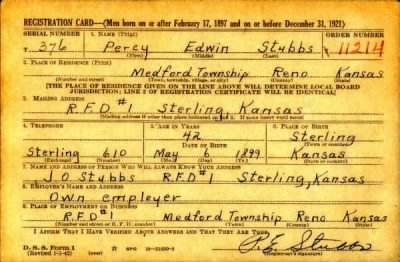 REGISTRATION CARD—(Men born on or after February 17, 1897 and on or before December 31, 1921)
SERIAL NUMBER 1. NAME (Print) ORDER NUMBER
T 376 Percy Edwin Stubbs 11214
(First) (Middle) (Last)
2. PLACE OF RESIDENCE (Print)
Medford Township Reno Kansas
(Number and street) (Town, township, village, or city) (County) (State)
[THE PLACE OF RESIDENCE GIVEN ON THE LINE ABOVE WILL DETERMINE LOCAL BOARD
JURISDICTION; LINE 2 OF REGISTRATION CERTIFICATE WILL BE IDENTICAL]
3. MAILING ADDRESS
R.F.D #1 Sterling, Kansas
[Mailing address if other than place indicated on line 2. If same insert word same]
4. TELEPHONE 5. AGE IN YEARS 6. PLACE OF BIRTH
42 Sterling
DATE OF BIRTH (Town or county)
Sterling 610 May 6 1899 Kansas
(Exchange) (Number) (Mo.) (Day) (Yr.) (State or country)
7. NAME AND ADDRESS OF PERSON WHO WILL ALWAYS KNOW YOUR ADDRESS
J O Stubbs R.F.D #1 Sterling, Kansas
8. EMPLOYER'S NAME AND ADDRESS
Own employer
9. PLACE OF EMPLOYMENT OR BUSINESS
R.F.D #1 Medford Township Reno Kansas
(Number and street or R. F. D. number) (Town) (County) (State)
I AFFIRM THAT I HAVE VERIFIED ABOVE ANSWERS AND THAT THEY ARE TRUE.
P E Stubbs
D. S. S. Form 1
(Revised 1-1-42) (over) (Registrant's signature)